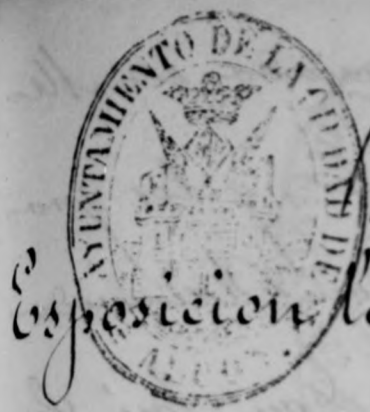 AYUNTAMIENTO DE LA CIUDAD DE
ALCOY
Esposicion